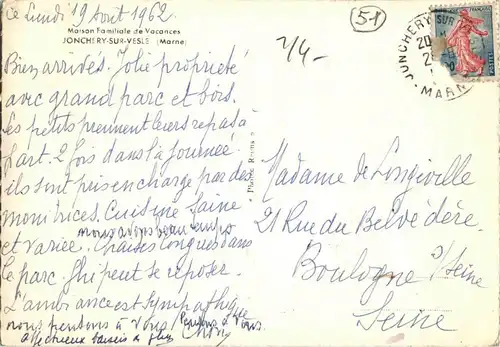 Ce Lundi 19 Aout 1962
Maison Familiale de Vacances
JONCHERY-SUR-VESLE (Marne)
51
2/4-
JONCHERY SUR
MARNE
Bien arrivés. Jolie propriété
avec grand parc et bois.
Les petits prennent leurs repas à
part. 2 fois dans la journée
ils sont pris en charge par des
monitrices. Cuisine saine
nous avons beau temps
et variée. Chaises longues dans
le parc.
peut se reposer.
L'ambiance est sympathique
nous pensons à vous
Affectueux baisers
Madame de Longiville
21 Rue du Belvédère
Boulogne s/Seine
Seine